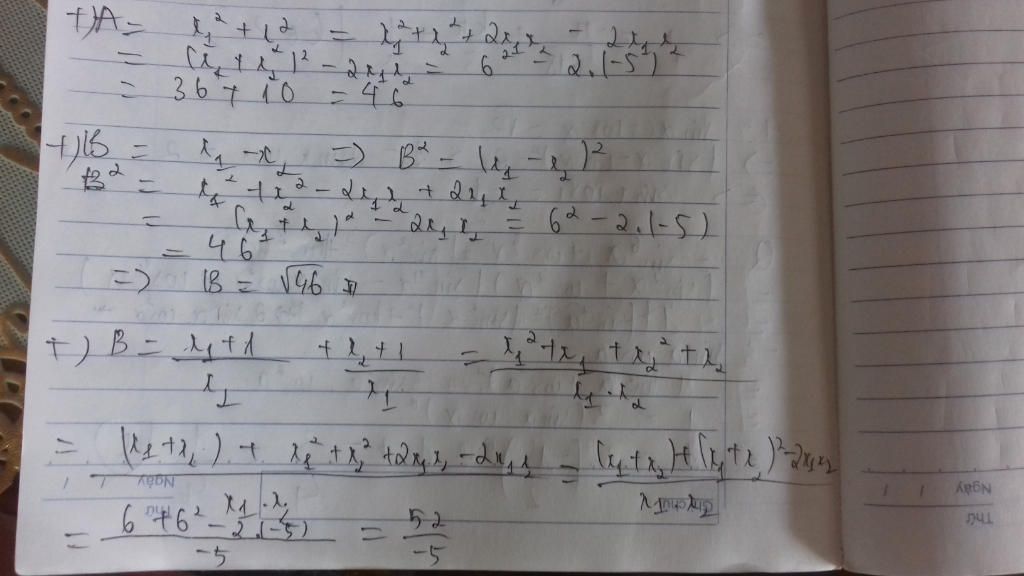 +) A = x₁² + x₂² = x₁² + x₂² + 2x₁x₂ - 2x₁x₂
= (x₁ + x₂)² - 2x₁x₂ = 6² - 2.(-5)
= 36 + 10 = 46
+) B = x₁ - x₂ => B² = (x₁ - x₂)²
B² = x₁² + x₂² - 2x₁x₂ + 2x₁x₂
= (x₁ + x₂)² - 2x₁x₂ = 6² - 2.(-5)
= 46
=> B = √46
+) B = (x₁ + 1)/x₂ + (x₂ + 1)/x₁ = (x₁² + x₁ + x₂² + x₂)/(x₁ . x₂)
= ((x₁ + x₂) + x₁² + x₂² + 2x₁x₂ - 2x₁x₂)/(x₁ . x₂) = ((x₁ + x₂) + (x₁ + x₂)² - 2x₁x₂)/(x₁ . x₂)
= (6 + 6² - 2.(-5))/-5 = 52/-5
Ngày
Thứ
Ghi chú
Ngày
Thứ